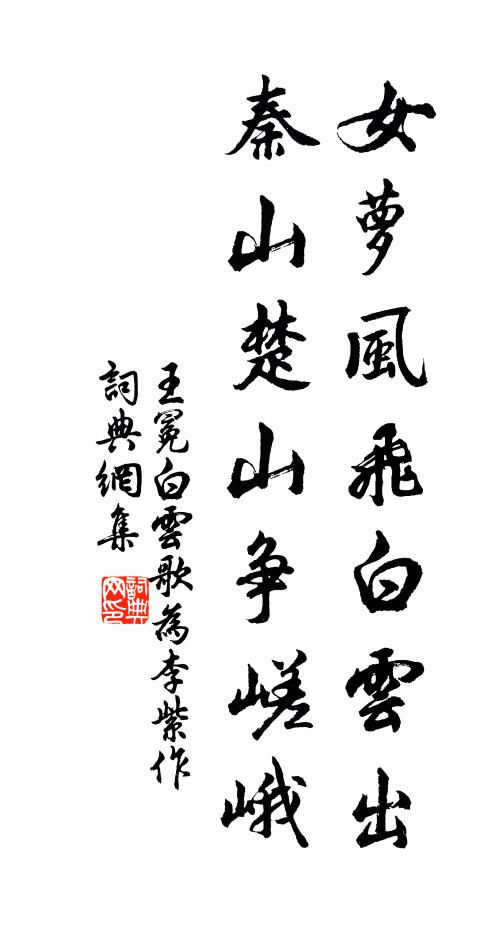 女萝風飛白雲出
秦山楚山争嵯峨
王冕白雲歌為李紫作
詞典網集
詞典网印